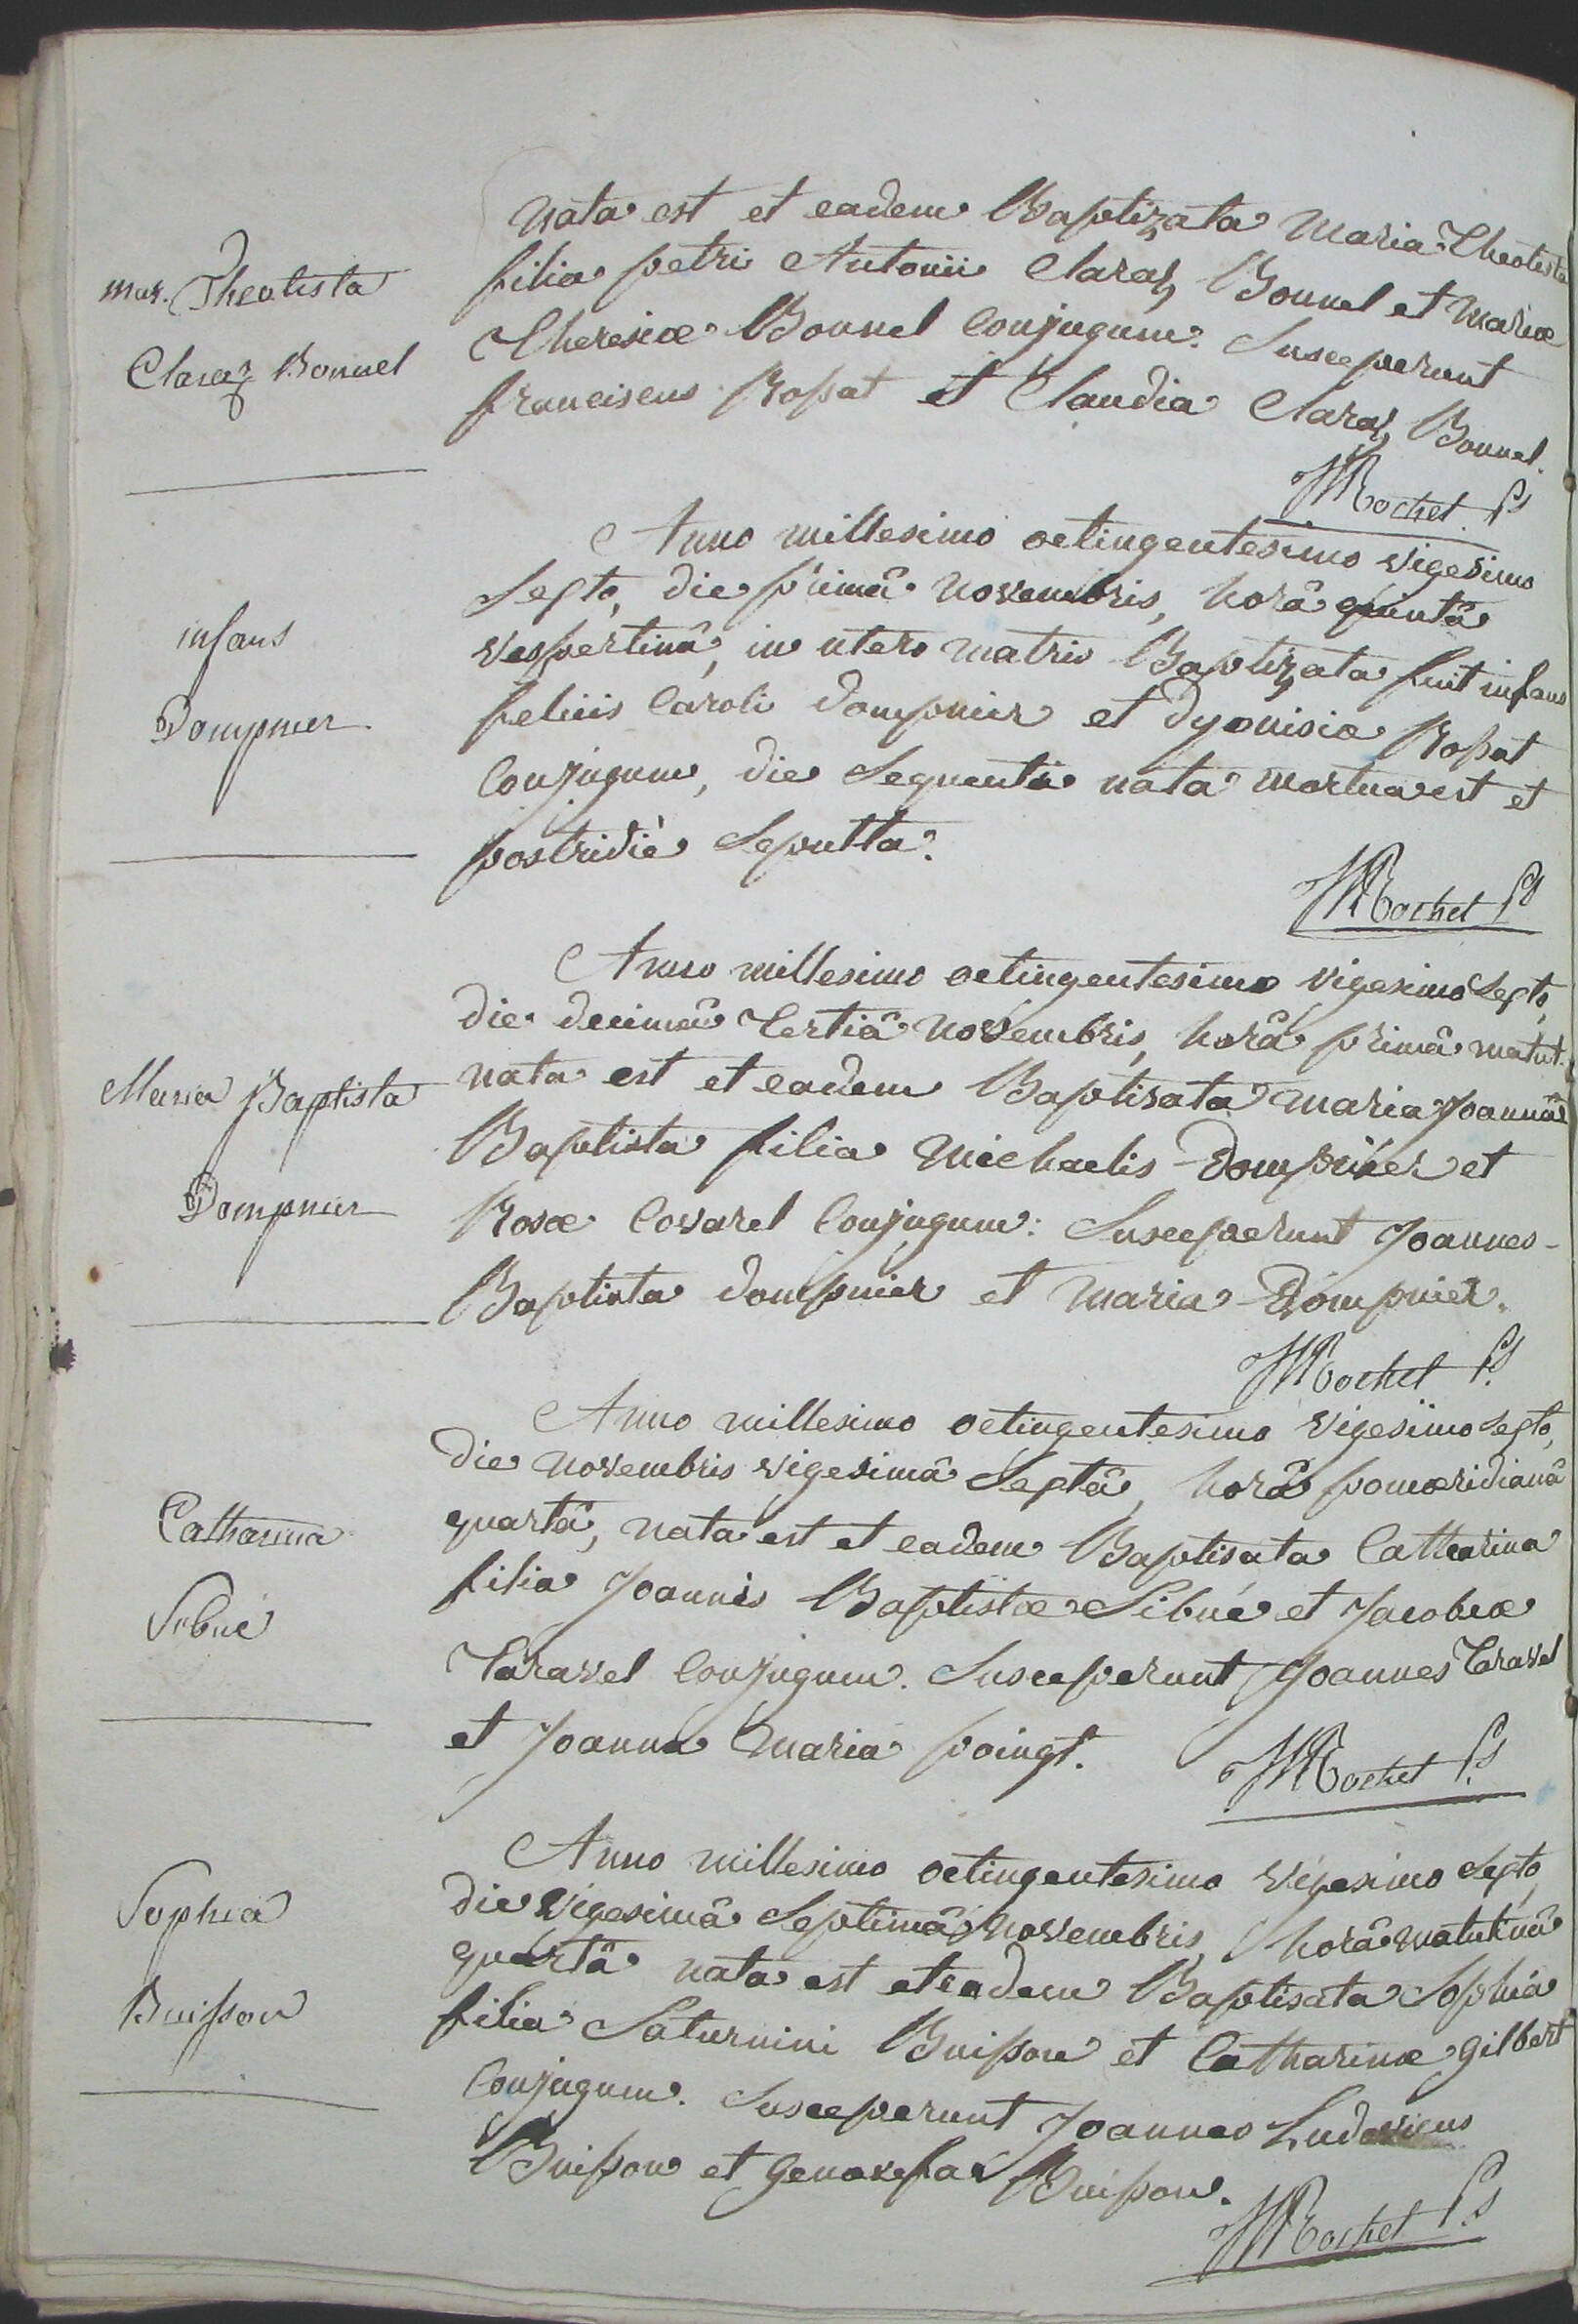 mar. Theotista
Claraz Bonnel
nata est et eadem Baptizata Maria-Theotista
filia petri Antonii Claraz Bonnel et Mariæ
Theresiæ Bonnel Conjugum. Susceperunt
franciscus Rossat et Claudia Claraz Bonnel.
Rochet
infans
Dompnier
Anno millesimo octingentesimo vigesimo
Sexto, die primâ novembris, horâ quintâ
vespertinâ, in utero matris Baptizata fuit infans
felicis Caroli dompnier et dyonisiæ Rossat
Conjugum, die Sequenti nata mortua est et
postridiè Sepulta.
Rochet
Maria Baptista
Dompnier
Anno millesimo octingentesimo vigesimo Sexto,
die decimâ tertiâ novembris, horâ primâ matut.
nata est et eadem Baptisata maria Joanna
Baptista filia Michaelis Dompnier et
Rosæ Covarel Conjugum: Susceperunt Joannes-
Baptista dompnier et maria Dompnier.
Rochet
Catharina
Sibué
Anno millesimo octingentesimo vigesimo Sexto,
die novembris vigesimâ Sextâ, horâ pomeridianâ
quartâ, nata est et eadem Baptisata Catharina
filia Joannis Baptistæ Sibué et Jacobeæ
Taravel Conjugum. Susceperunt Joannes Taravel
et Joanna Maria poingt.
Rochet
Sophia
Buisson
Anno millesimo octingentesimo vigesimo Sexto,
die vigesimâ Septimâ novembris, horâ matutinâ
quartâ nata est et eadem Baptisata Sophia
filia Saturnini Buisson et Catharinæ gilbert
Conjugum. Susceperunt Joannes Ludovicus
Buisson et genovefa Buisson.
Rochet